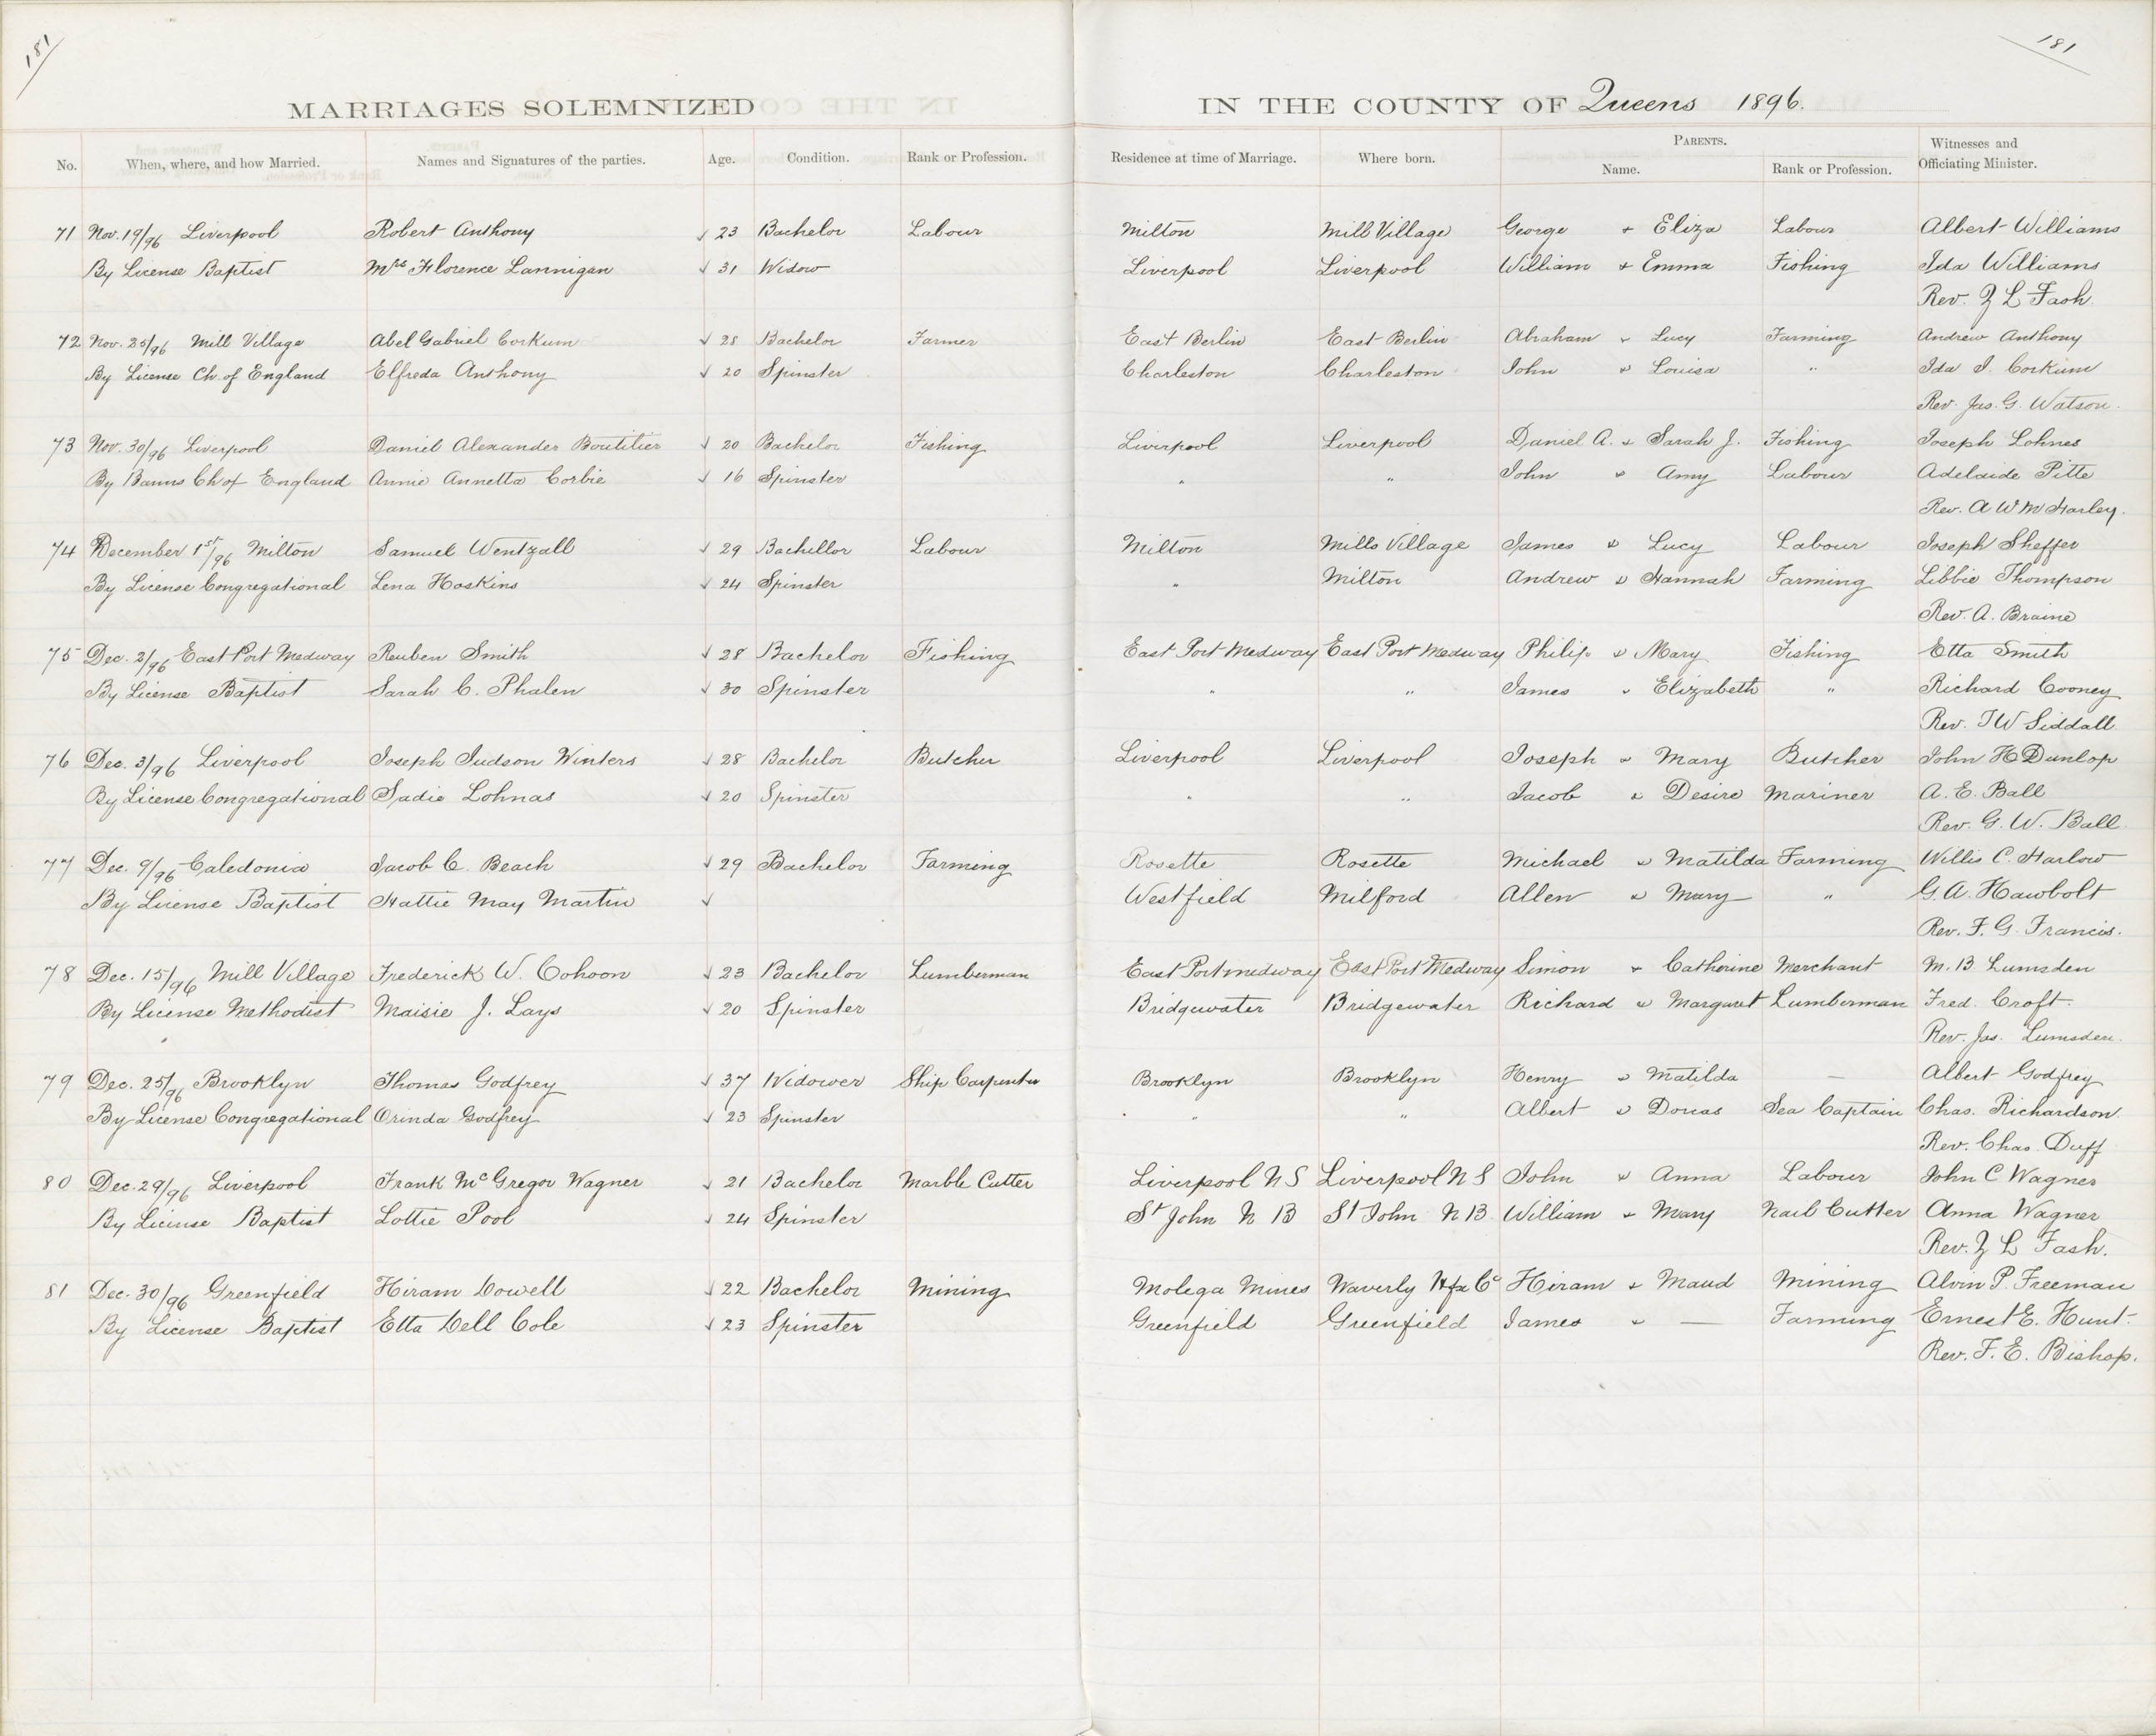 181
181
MARRIAGES SOLEMNIZED IN THE COUNTY OF Queens 1896.
No. When, where, and how Married. Names and Signatures of the parties. Age. Condition. Rank or Profession. Residence at time of Marriage. Where born. PARENTS. Name. Rank or Profession. Witnesses and Officiating Minister.
71 Nov. 19/96 Liverpool Robert Anthony √ 23 Bachelor Labour Milton Mill Village George + Eliza Labour Albert Williams
By License Baptist Mrs Florence Lannigan √ 31 Widow Liverpool Liverpool William + Emma Fishing Ida Williams
Rev. Z L Fash.
72 Nov. 25/96 Mill Village Abel Gabriel Corkum √ 28 Bachelor Farmer East Berlin East Berlin Abraham + Lucy Farming Andrew Anthony
By License Ch. of England Elfreda Anthony √ 20 Spinster Charleston Charleston John + Louisa " Ida I. Corkum
Rev. Jas. G. Watson.
73 Nov. 30/96 Liverpool Daniel Alexander Boutilier √ 20 Bachelor Fishing Liverpool Liverpool Daniel A. + Sarah J. Fishing Joseph Lohnes
By Banns Ch of England Annie Annetta Corbie √ 16 Spinster " " John + Amy Labour Adelaide Pitte
Rev. A W M Harley.
74 December 1st/96 Milton Samuel Wentzall √ 29 Bachellor Labour Milton Mills Village James + Lucy Labour Joseph Sheffer
By License Congregational Lena Hoskins √ 24 Spinster " Milton Andrew + Hannah Farming Libbie Thompson
Rev. A. Braine
75 Dec. 2/96 East Port Medway Reuben Smith √ 28 Bachelor Fishing East Port Medway East Port Medway Philip + Mary Fishing Etta Smith
By License Baptist Sarah C. Phalen √ 30 Spinster " " James + Elizabeth " Richard Cooney
Rev. I W Siddall.
76 Dec. 3/96 Liverpool Joseph Judson Winters √ 28 Bachelor Butcher Liverpool Liverpool Joseph + Mary Butcher John H Dunlop
By License Congregational Sadie Lohnas √ 20 Spinster " " Jacob + Desire Mariner A. E. Ball
Rev. G. W. Ball.
77 Dec. 9/96 Caledonia Jacob C. Beach √ 29 Bachelor Farming Rosette Rosette Michael + Matilda Farming Willis C. Harlow
By License Baptist Hattie May Martin √ Westfield Milford Allen + Mary " G. A. Hawbolt
Rev. F. G. Francis.
78 Dec. 15/96 Mill Village Frederick W. Cohoon √ 23 Bachelor Lumberman East Portmedway East Port Medway Simon + Catherine Merchant M. B. Lumsden
By License Methodist Maisie J. Lays √ 20 Spinster Bridgewater Bridgewater Richard + Margaret Lumberman Fred. Croft.
Rev. Jas. Lumsden.
79 Dec. 25/96 Brooklyn Thomas Godfrey √ 37 Widower Ship Carpenter Brooklyn Brooklyn Henry + Matilda — Albert Godfrey
By License Congregational Orinda Godfrey √ 23 Spinster " " Albert + Dorcas Sea Captain Chas. Richardson.
Rev. Chas. Duff
80 Dec. 29/96 Liverpool Frank McGregor Wagner √ 21 Bachelor Marble Cutter Liverpool N S Liverpool N S John + Anna Labour John C Wagner
By License Baptist Lottie Pool √ 24 Spinster St John N B St John N B. William + Mary Nail Cutter Anna Wagner
Rev. Z L Fash.
81 Dec. 30/96 Greenfield Hiram Lowell √ 22 Bachelor Mining Molega Mines Waverly Hfx Co Hiram + Maud Mining Alvin P. Freeman
By License Baptist Etta Dell Cole √ 23 Spinster Greenfield Greenfield James + — Farming Ernest E. Hunt.
Rev. F. E. Bishop.